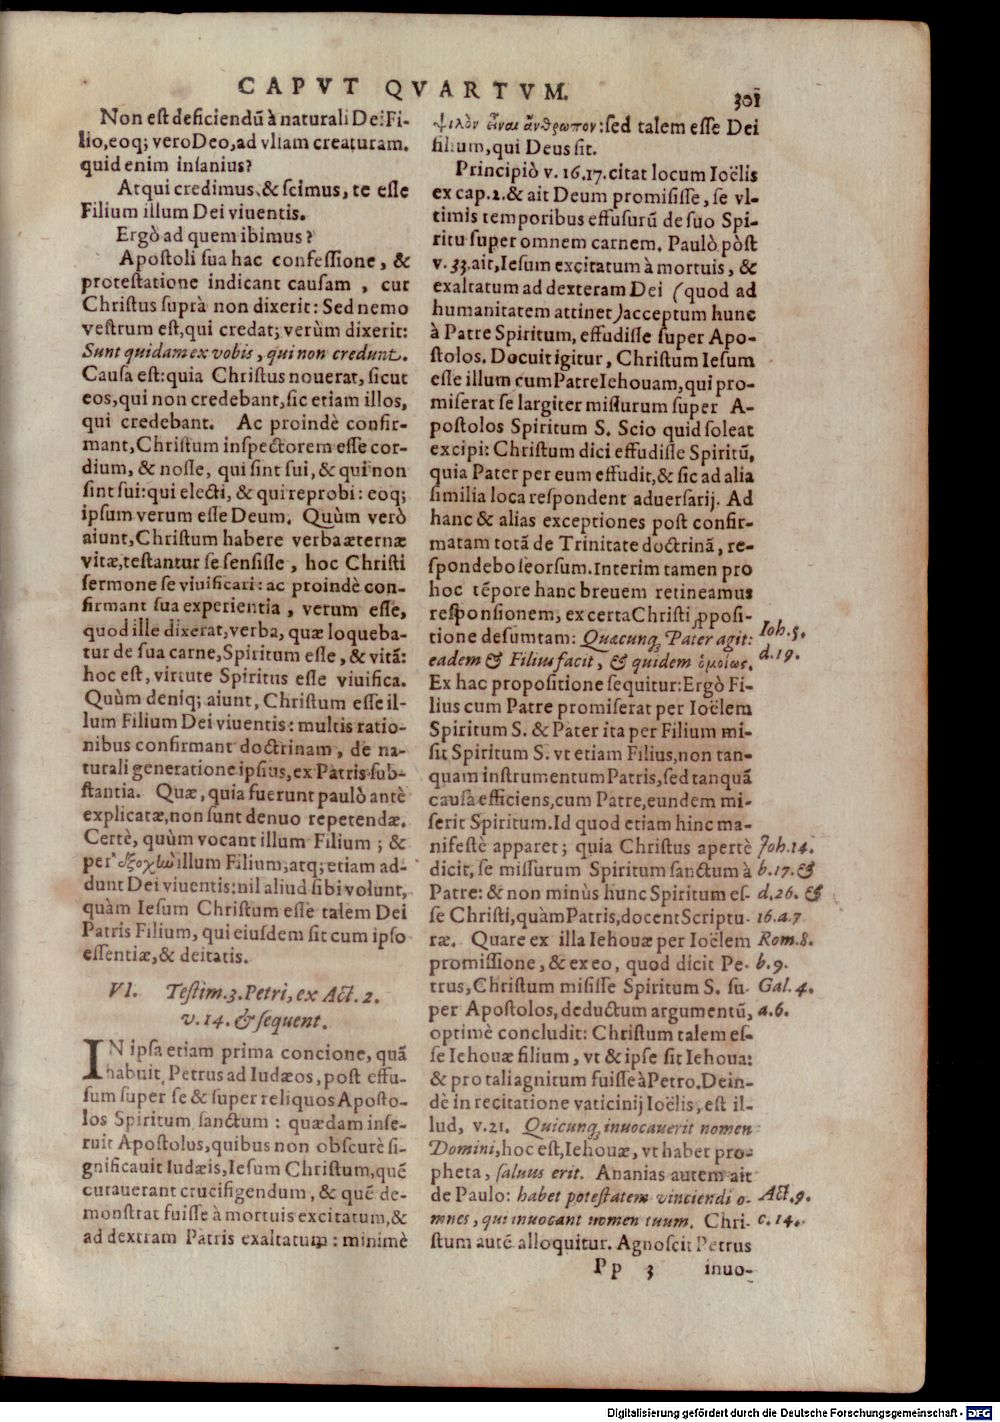 CAPVT QVARTVM.
301
Non est deficiendũ à naturali Dei Fi-
lio, eoq; vero Deo, ad vllam creaturam.
quid enim insanius?
Atqui credimus, & scimus, te esse
Filium illum Dei viuentis.
Ergò ad quem ibimus?
Apostoli sua hac confessione, &
protestatione indicant causam, cur
Christus suprà non dixerit: Sed nemo
vestrum est, qui credat; verùm dixerit:
Sunt quidam ex vobis, qui non credunt.
Causa est: quia Christus nouerat, sicut
eos, qui non credebant, sic etiam illos,
qui credebant. Ac proindè confir-
mant, Christum inspectorem esse cor-
dium, & nosse, qui sint sui, & qui non
sint sui: qui electi, & qui reprobi: eoq;
ipsum verum esse Deum. Quùm verò
aiunt, Christum habere verba æternæ
vitæ, testantur se sensisse, hoc Christi
sermone se viuificari: ac proindè con-
firmant sua experientia, verum esse,
quod ille dixerat, verba, quæ loqueba-
tur de sua carne, Spiritum esse, & vitã:
hoc est, virtute Spiritus esse viuifica.
Quùm deniq; aiunt, Christum esse il-
lum Filium Dei viuentis: multis ratio-
nibus confirmant doctrinam, de na-
turali generatione ipsius, ex Patris sub-
stantia. Quæ, quia fuerunt paulò antè
explicatæ, non sunt denuo repetendæ.
Certè, quùm vocant illum Filium; &
per ἐξοχὴν illum Filium, atq; etiam ad-
dunt Dei viuentis: nil aliud sibi volunt,
quàm Iesum Christum esse talem Dei
Patris Filium, qui eiusdem sit cum ipso
essentiæ, & deitatis.
VI. Testim. 3. Petri, ex Act. 2.
v. 14. & sequent.
IN ipsa etiam prima concione, quã
habuit Petrus ad Iudæos, post effu-
sum super se & super reliquos Aposto-
los Spiritum sanctum: quædam inse-
ruit Apostolus, quibus non obscurè si-
gnificauit Iudæis, Iesum Christum, quẽ
curauerant crucifigendum, & quẽ de-
monstrat fuisse à mortuis excitatum, &
ad dextram Patris exaltatum: minimè
ψιλὸν εἶναι ἄνθρωπον: sed talem esse Dei
filium, qui Deus sit.
Principiò v. 16. 17. citat locum Ioëlis
ex cap. 2. & ait Deum promisisse, se vl-
timis temporibus effusurũ de suo Spi-
ritu super omnem carnem. Paulò pòst
v. 33. ait, Iesum excitatum à mortuis, &
exaltatum ad dexteram Dei (quod ad
humanitatem attinet) acceptum hunc
à Patre Spiritum, effudisse super Apo-
stolos. Docuit igitur, Christum Iesum
esse illum cum Patre Iehouam, qui pro-
miserat se largiter missurum super A-
postolos Spiritum S. Scio quid soleat
excipi: Christum dici effudisse Spiritũ,
quia Pater per eum effudit, & sic ad alia
similia loca respondent aduersarij. Ad
hanc & alias exceptiones post confir-
matam totã de Trinitate doctrinã, re-
spondebo seorsum. Interim tamen pro
hoc tẽpore hanc breuem retineamus
responsionem, ex certa Christi ꝓposi-
tione desumtam: Quæcunq; Pater agit:
eadem & Filius facit, & quidem ὁμοίως.
Ex hac propositione sequitur: Ergò Fi-
lius cum Patre promiserat per Ioëlem
Spiritum S. & Pater ita per Filium mi-
sit Spiritum S. vt etiam Filius, non tan-
quam instrumentum Patris, sed tanquã
causa efficiens, cum Patre, eundem mi-
serit Spiritum. Id quod etiam hinc ma-
nifestè apparet; quia Christus apertè
dicit, se missurum Spiritum sanctum à
Patre: & non minùs hunc Spiritum es-
se Christi, quàm Patris, docent Scriptu-
ræ. Quare ex illa Iehouæ per Ioëlem
promissione, & ex eo, quod dicit Pe-
trus, Christum misisse Spiritum S. su-
per Apostolos, deductum argumentũ,
optimè concludit: Christum talem es-
se Iehouæ filium, vt & ipse sit Iehoua:
& pro tali agnitum fuisse à Petro. Dein-
dè in recitatione vaticinij Ioëlis, est il-
lud, v. 21. Quicunq; inuocauerit nomen
Domini, hoc est, Iehouæ, vt habet pro-
pheta, saluus erit. Ananias autem ait
de Paulo: habet potestatem vinciendi o-
mnes, qui inuocant nomen tuum. Chri-
stum autẽ alloquitur. Agnoscit Petrus
Pp 3 inuo-
Ioh. 5.
d. 19.
Joh. 14.
b. 17. &
d. 26. &
16. a. 7
Rom. 8.
b. 9.
Gal. 4.
a. 6.
Act. 9.
c. 14.
Digitalisierung gefördert durch die Deutsche Forschungsgemeinschaft - DFG